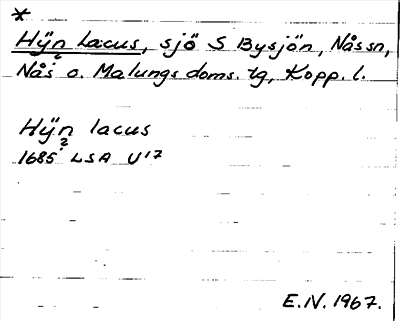 *
Hÿn lacus, sjö S Bysjön, Nås sn,
?
Nås o. Malungs doms. lg, Kopp. l.
Hÿn lacus
?
1685 LSA U17
E.N. 1967.